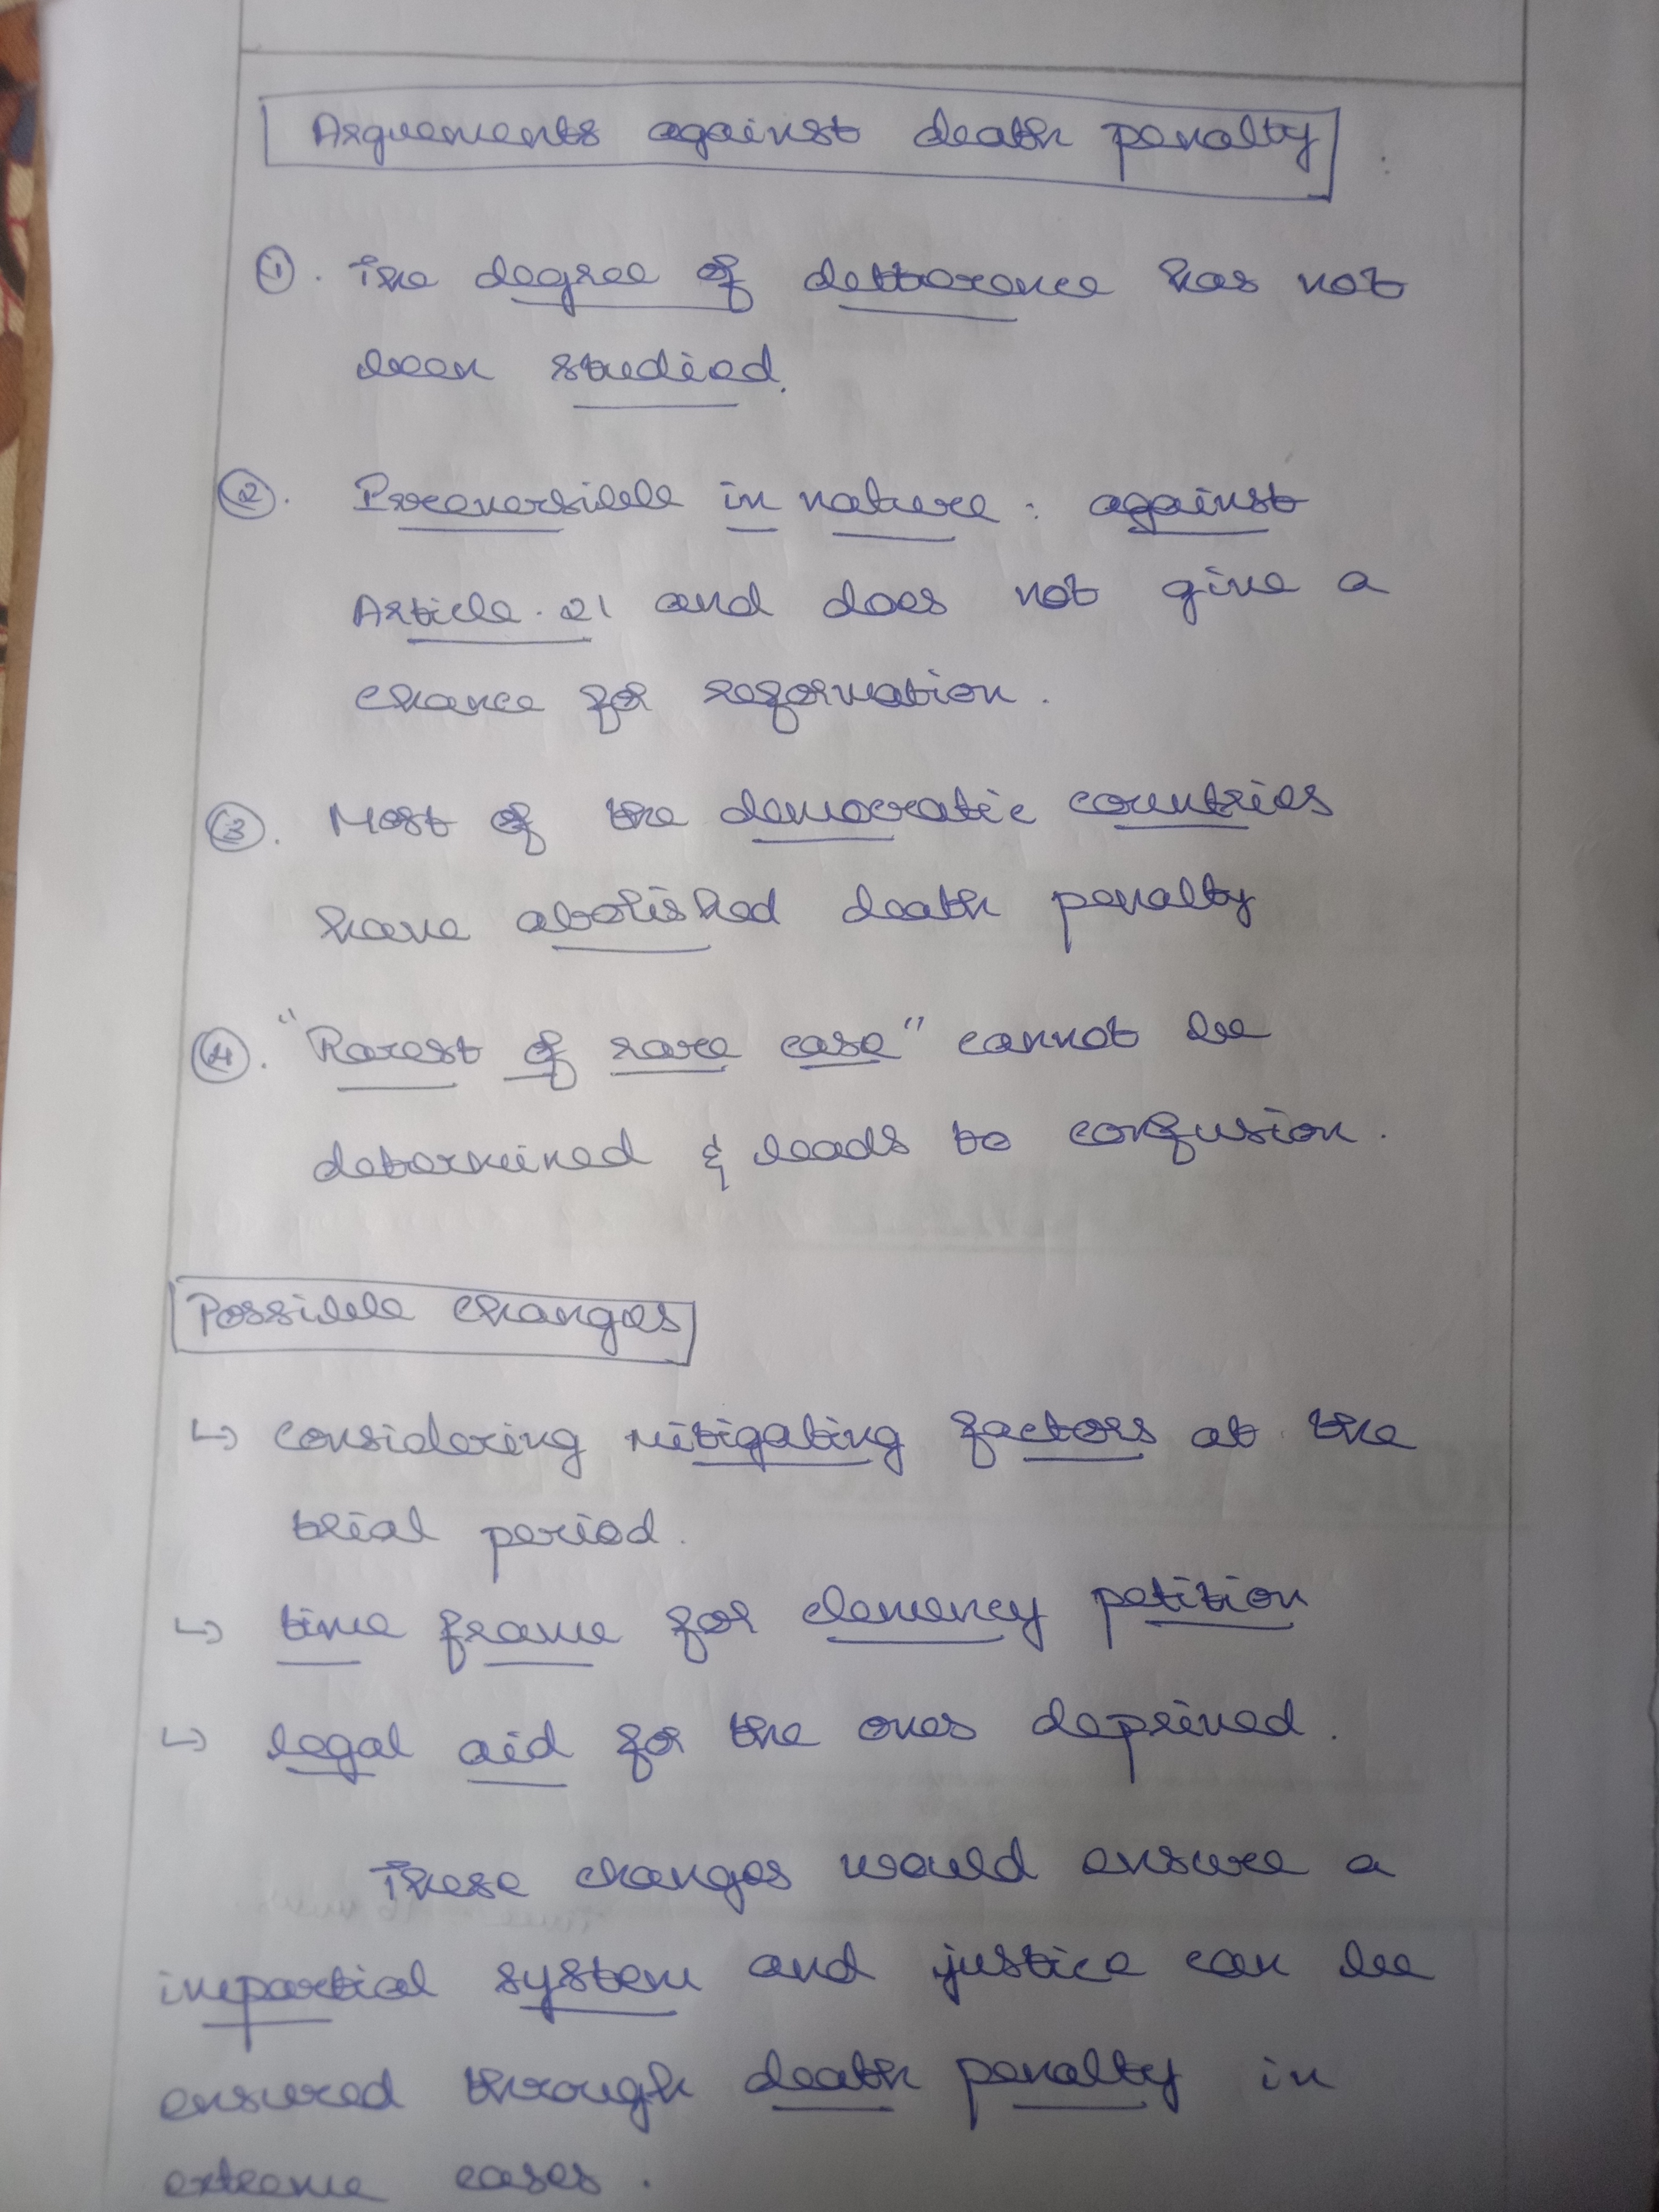 Arguements against death penalty
① . The degree of detterence has not
been studied.
② . Irreversible in nature : against
Article . 21 and does not give a
chance for reformation .
③ . Most of the democratic countries
have abolished death penalty
④ . "Rarest of rare case" cannot be
determined & leads to confusion .
Possible changes
↳ considering mitigating factors at the
trial period .
↳ time frame for clemency petition
↳ legal aid for the ones deprived .
These changes would ensure a
impartial system and justice can be
ensured through death penalty in
extreme cases .